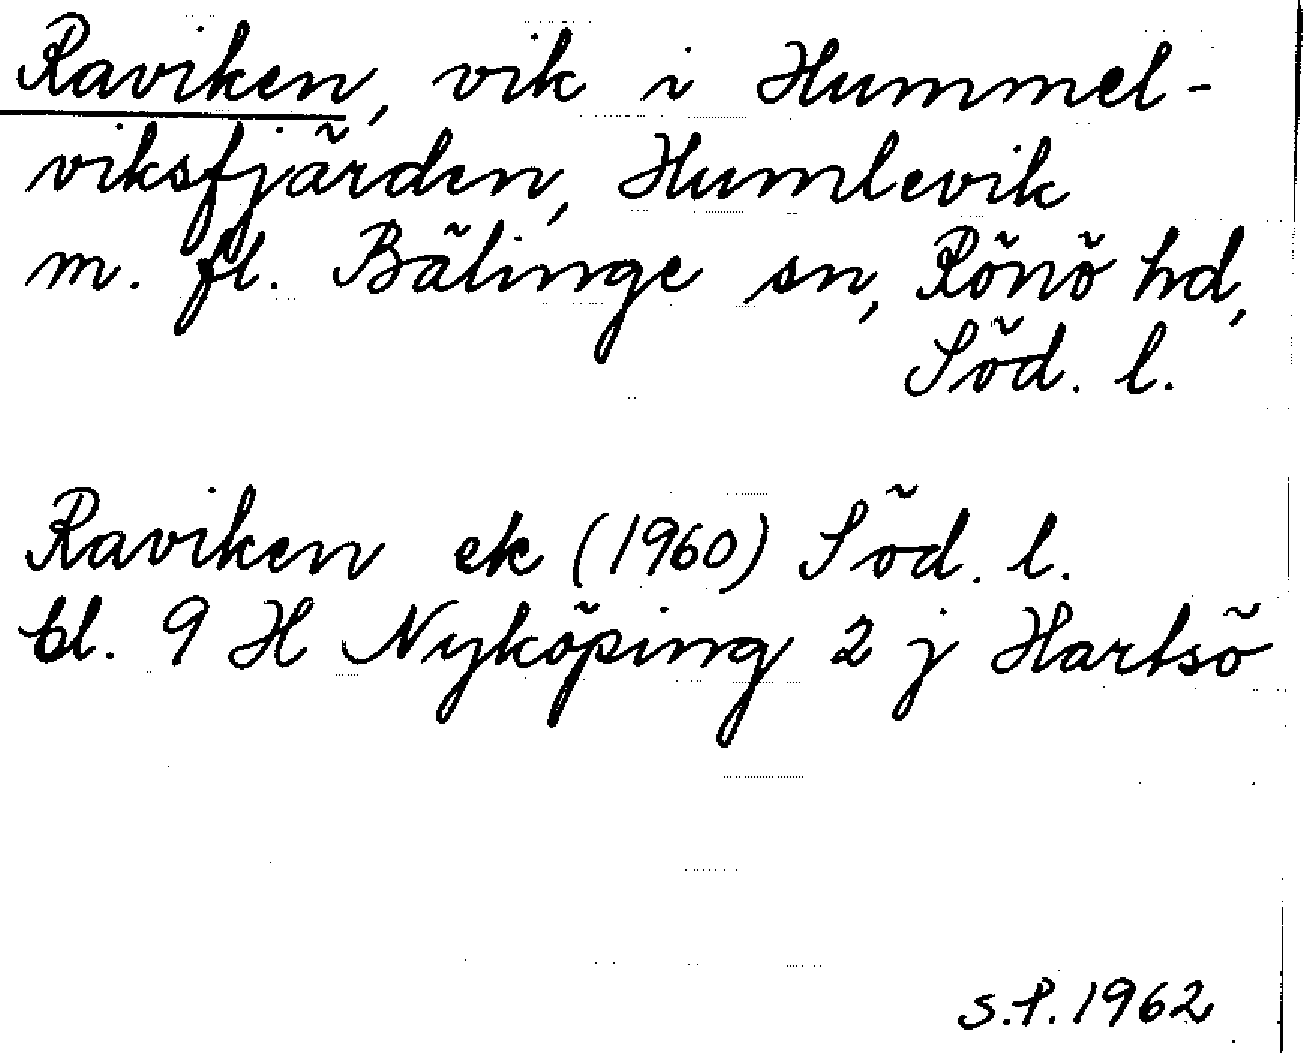 Raviken, vik i Hummel-
viksfjärden, Humlevik
m. fl. Bälinge sn, Rönö hd,
Söd. l.
Raviken ek (1960) Söd. l.
bl. 9 H Nyköping 2 j Hartsö
S.P. 1962